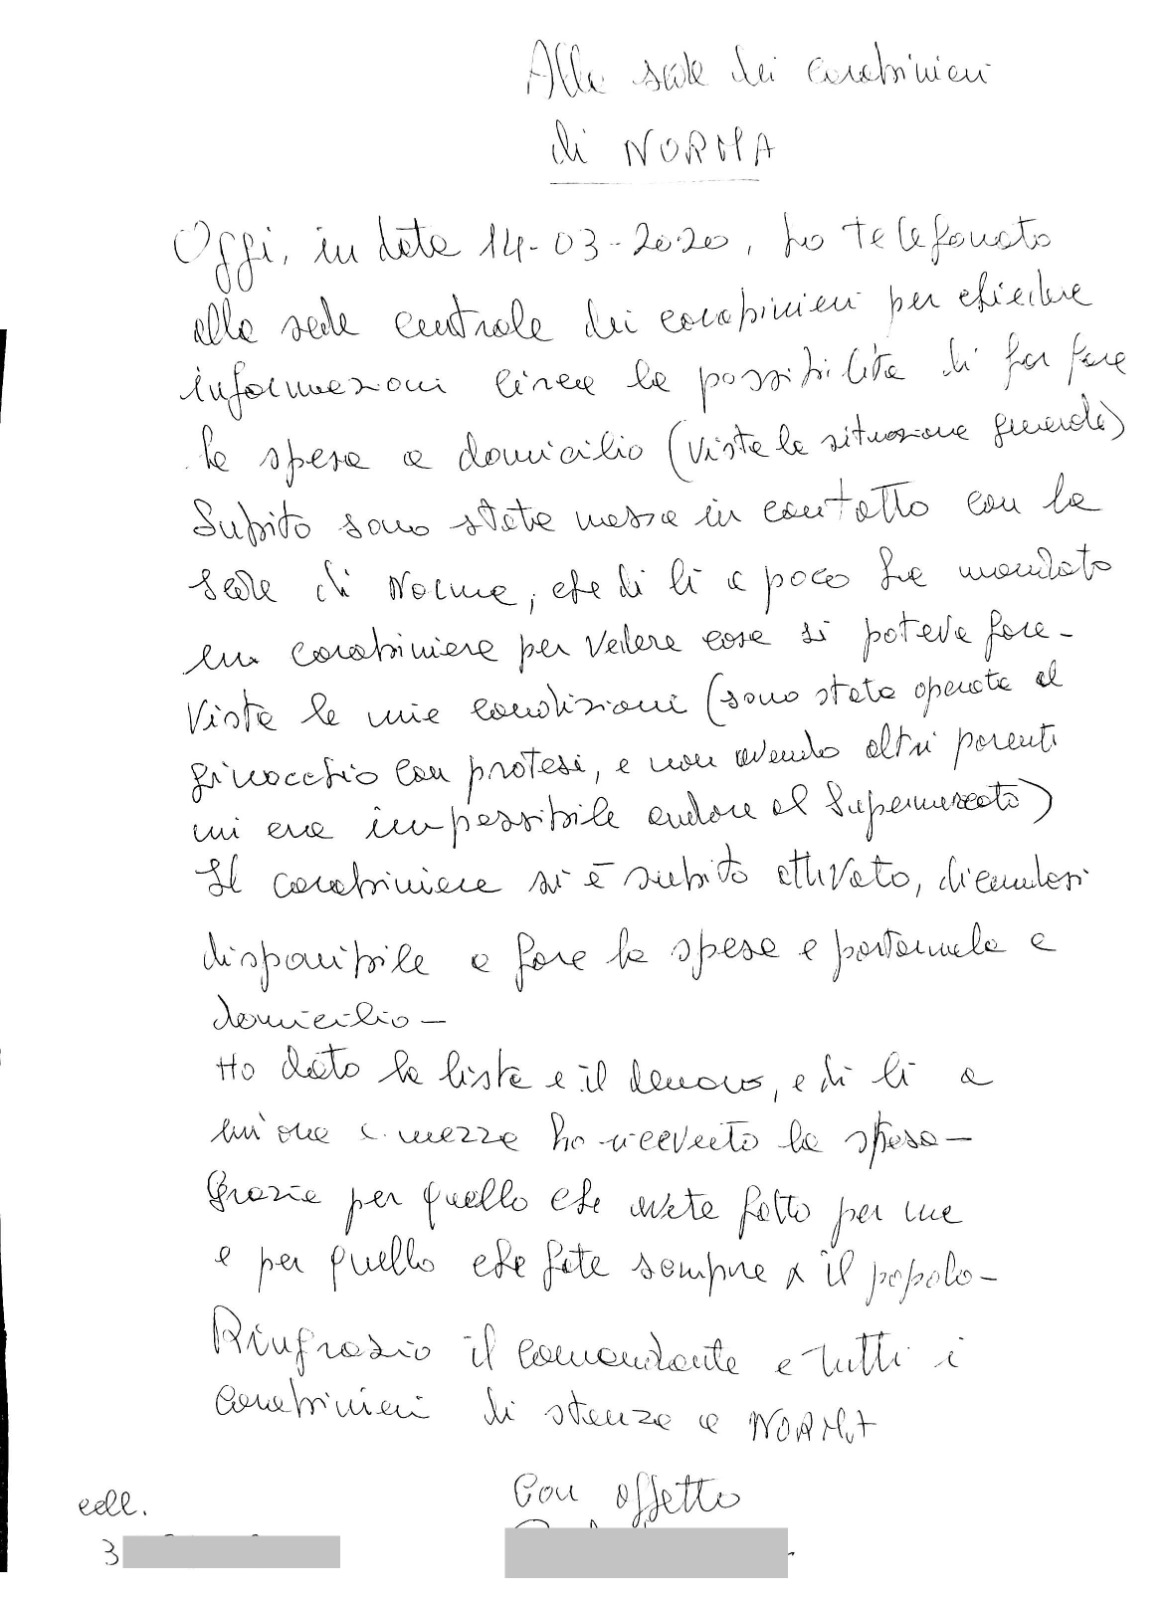 Alla sede dei carabinieri
di NORMA
Oggi, in data 14-03-2020, ho telefonato
alla sede centrale dei carabinieri per chiedere
informazioni circa la possibilità di far fare
la spesa a domicilio (vista la situazione generale)
Subito sono stata messa in contatto con la
sede di Norma, che di lì a poco ha mandato
un carabiniere per vedere cosa si poteva fare-
Viste le mie condizioni (sono stata operata al
ginocchio con protesi, e non avendo altri parenti
mi era impossibile andare al Supermercato)
Il carabiniere si è subito attivato, dicendosi
disponibile a fare la spesa e portarmela a
domicilio-
Ho dato la lista e il denaro, e di lì a
un'ora e mezza ho ricevuto la spesa-
Grazie per quello che avete fatto per me
e per quello che fate sempre x il popolo-
Ringrazio il comandante e tutti i
carabinieri di stanza a NORMA
Con affetto
cell.
3